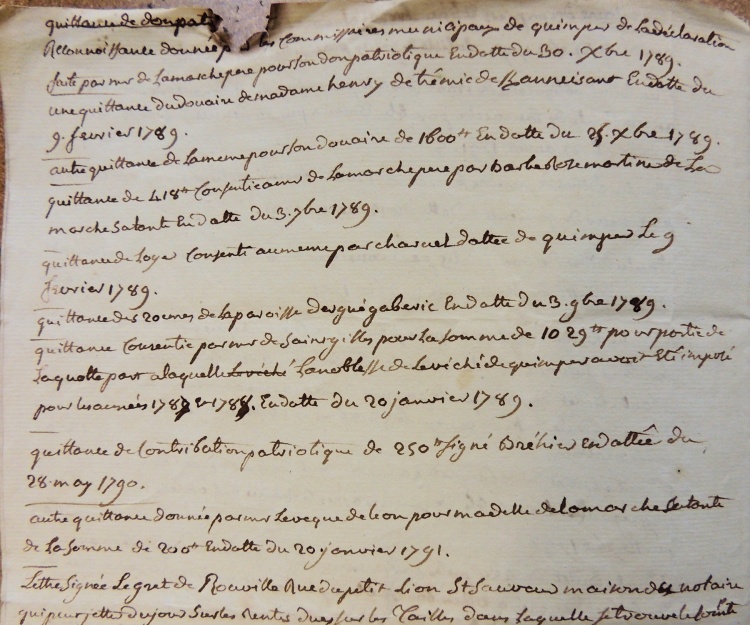 quittance de don pat
Reconnoissance donnée par les Commissaires municipaux de quimper de la déclaration
faite par mr de Lamarche pere pour son don patriotique En datte du 30. Xbre 1789.
une quittance du douaire de madame henry de trémic de En datte du
9. fevrier 1789.
autre quittance de la meme pour son douaire de 1600tt En datte du 25. Xbre 1789.
quittance de 418tt Consentie a mr de Lamarche pere par Barbe Roze martine de La
marche sa tante En datte du 3. 7bre 1789.
quittance de Loyer Consenti au meme par charuel dattée de quimper Le 9
fevrier 1789.
quittance des 20emes de la paroisse dergué gaberic En datte du 3. 9bre 1789.
quittance Consentie par mr de Saint gilles pour La somme de 1029tt pour portie de
La quotte part a laquelle Lanoblesse de Levéché de quimper avoit Eté imposé
pour les années 1787 et 1788. En datte du 20 janvier 1789.
quittance de Contribution patriotique de 250tt Signé Bréhier En dattée du
28. may 1790.
autre quittance donnée par mr Leveque de leon pour madelle de lamarche Sa tante
de La Somme de 200tt En datte du 20 janvier 1791.
Lettre Signée Legret de Rouville Rue du petit Lion St Sauveur maison du notaire
qui projette du jour Sur les Rentes dues sur les Tailles dans Laquelle se trouve le